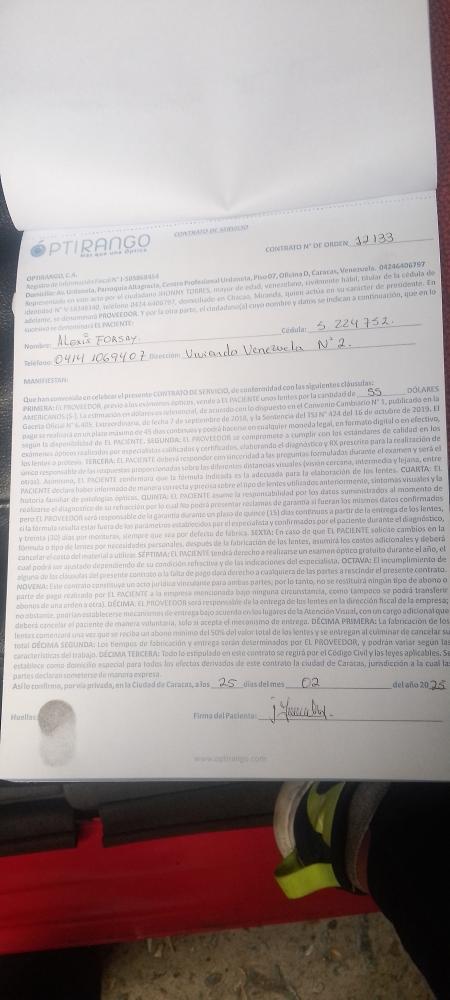 CONTRATO DE SERVICIO
ÓPTIRANGO
Más que una Óptica
CONTRATO N° DE ORDEN 12133
OPTIRANGO, C.A.
Registro de Información Fiscal N° J-503868454
Domicilio: Av. Urdaneta, Parroquia Altagracia, Centro Profesional Urdaneta, Piso 07, Oficina D, Caracas, Venezuela. 04246406797
Representado en este acto por el ciudadano JHONNY TORRES, mayor de edad, venezolano, civilmente hábil, titular de la cédula de
identidad N° V-18348140, teléfono 0424-6406797, domiciliado en Chacao, Miranda, quien actúa en su carácter de presidente. En
adelante, se denominará PROVEEDOR. Y por la otra parte, el ciudadano(a) cuyo nombre y datos se indican a continuación, que en lo
sucesivo se denominará EL PACIENTE:
Nombre: Alexis FORSAY. Cédula: 5 224 752.
Teléfono: 0414 1069407 Dirección: Vivienda Venezuela N° 2.
MANIFIESTAN:
Que han convenido en celebrar el presente CONTRATO DE SERVICIO, de conformidad con las siguientes cláusulas:
PRIMERA: EL PROVEEDOR, previo a los exámenes ópticos, vende a EL PACIENTE unos lentes por la cantidad de 55 DÓLARES
AMERICANOS (US $). La estimación en dólares es referencial, de acuerdo con lo dispuesto en el Convenio Cambiario N° 1, publicado en la
Gaceta Oficial N° 6.405, Extraordinaria, de fecha 7 de septiembre de 2018, y la Sentencia del TSJ N° 424 del 16 de octubre de 2019. El
pago se realizará en un plazo máximo de 45 días continuos y podrá hacerse en cualquier moneda legal, en formato digital o en efectivo,
según la disponibilidad de EL PACIENTE. SEGUNDA: EL PROVEEDOR se compromete a cumplir con los estándares de calidad en los
exámenes ópticos realizados por especialistas calificados y certificados, elaborando el diagnóstico y RX prescrito para la realización de
los lentes o prótesis. TERCERA: EL PACIENTE deberá responder con sinceridad a las preguntas formuladas durante el examen y será el
único responsable de las respuestas proporcionadas sobre las diferentes distancias visuales (visión cercana, intermedia y lejana, entre
otras). Asimismo, EL PACIENTE confirmará que la fórmula indicada es la adecuada para la elaboración de los lentes. CUARTA: EL
PACIENTE declara haber informado de manera correcta y precisa sobre el tipo de lentes utilizados anteriormente, síntomas visuales y la
historia familiar de patologías ópticas. QUINTA: EL PACIENTE asume la responsabilidad por los datos suministrados al momento de
realizarse el diagnóstico de su refracción por lo cual no podrá presentar reclamos de garantía si fueran los mismos datos confirmados
pero EL PROVEEDOR será responsable de la garantía durante un plazo de quince (15) días continuos a partir de la entrega de los lentes,
si la fórmula resulta estar fuera de los parámetros establecidos por el especialista y confirmados por el paciente durante el diagnóstico,
y treinta (30) días por monturas, siempre que sea por defecto de fábrica. SEXTA: En caso de que EL PACIENTE solicite cambios en la
fórmula o tipo de lentes por necesidades personales, después de la fabricación de los lentes, asumirá los costos adicionales y deberá
cancelar el costo del material a utilizar. SÉPTIMA: EL PACIENTE tendrá derecho a realizarse un examen óptico gratuito durante el año, el
cual podrá ser ajustado dependiendo de su condición refractiva y de las indicaciones del especialista. OCTAVA: El incumplimiento de
alguna de las cláusulas del presente contrato o la falta de pago dará derecho a cualquiera de las partes a rescindir el presente contrato.
NOVENA: Este contrato constituye un acto jurídico vinculante para ambas partes; por lo tanto, no se restituirá ningún tipo de abono o
parte de pago realizado por EL PACIENTE a la empresa mencionada bajo ninguna circunstancia, como tampoco se podrá transferir
abonos de una orden a otra). DÉCIMA: EL PROVEEDOR será responsable de la entrega de los lentes en la dirección fiscal de la empresa;
no obstante, podrían establecerse mecanismos de entrega bajo acuerdo en los lugares de la Atención Visual, con un cargo adicional que
deberá cancelar el paciente de manera voluntaria, solo si acepta el mecanismo de entrega. DÉCIMA PRIMERA: La fabricación de los
lentes comenzará una vez que se reciba un abono mínimo del 50% del valor total de los lentes y se entregan al culminar de cancelar su
total DÉCIMA SEGUNDA: Los tiempos de fabricación y entrega serán determinados por EL PROVEEDOR, y podrán variar según las
características del trabajo. DÉCIMA TERCERA: Todo lo estipulado en este contrato se regirá por el Código Civil y las leyes aplicables. Se
establece como domicilio especial para todos los efectos derivados de este contrato la ciudad de Caracas, jurisdicción a la cual las
partes declaran someterse de manera expresa.
Así lo confirme, por vía privada, en la Ciudad de Caracas, a los 25 días del mes 02 del año 2025
Huellas:
Firma del Paciente:
www.optirango.com